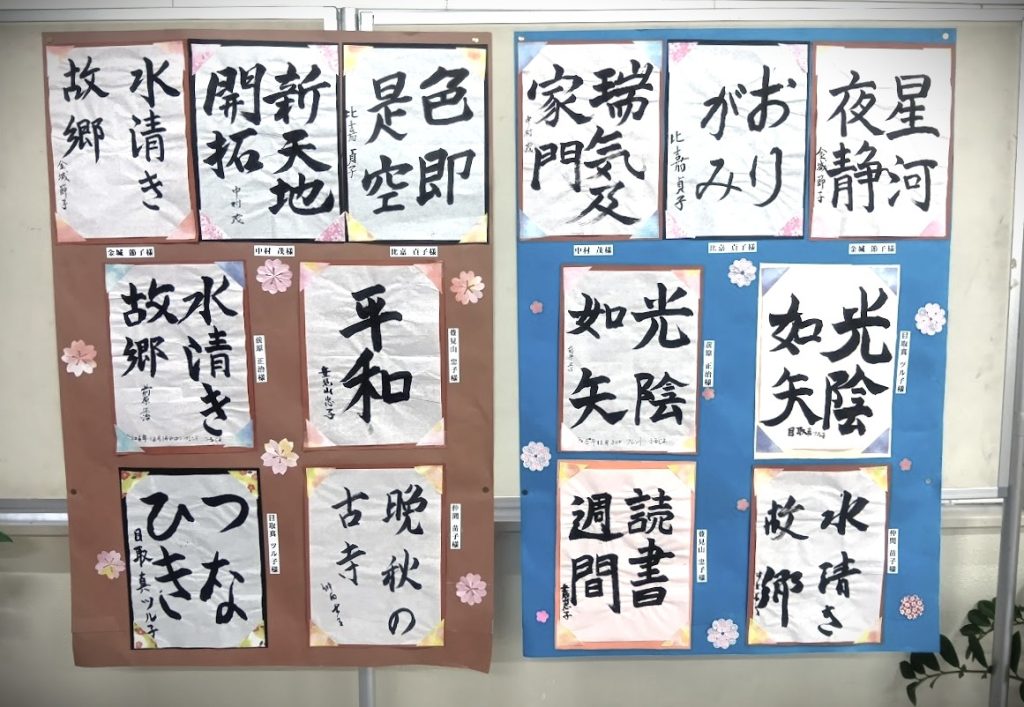 色即
是空
比嘉貞子
新天地
開拓
中村茂
水清き
故郷
金城節子
比嘉 貞子様
中村 茂様
金城 節子様
平和
豊見山忠子
豊見山 忠子様
水清き
故郷
前原正治
前原 正治様
晩秋の
古寺
仲間 苗子様
つな
ひき
目取真ツル子
目取真 ツル子様
星河
夜静
金城節子
おり
がみ
比嘉貞子
瑞気及
家門
中村茂
金城 節子様
比嘉 貞子様
中村 茂様
光陰
如矢
目取真ツル子
目取真 ツル子様
光陰
如矢
前原正治
前原 正治様
水清き
故郷
仲間 苗子様
読書
週間
豊見山忠子
豊見山 忠子様